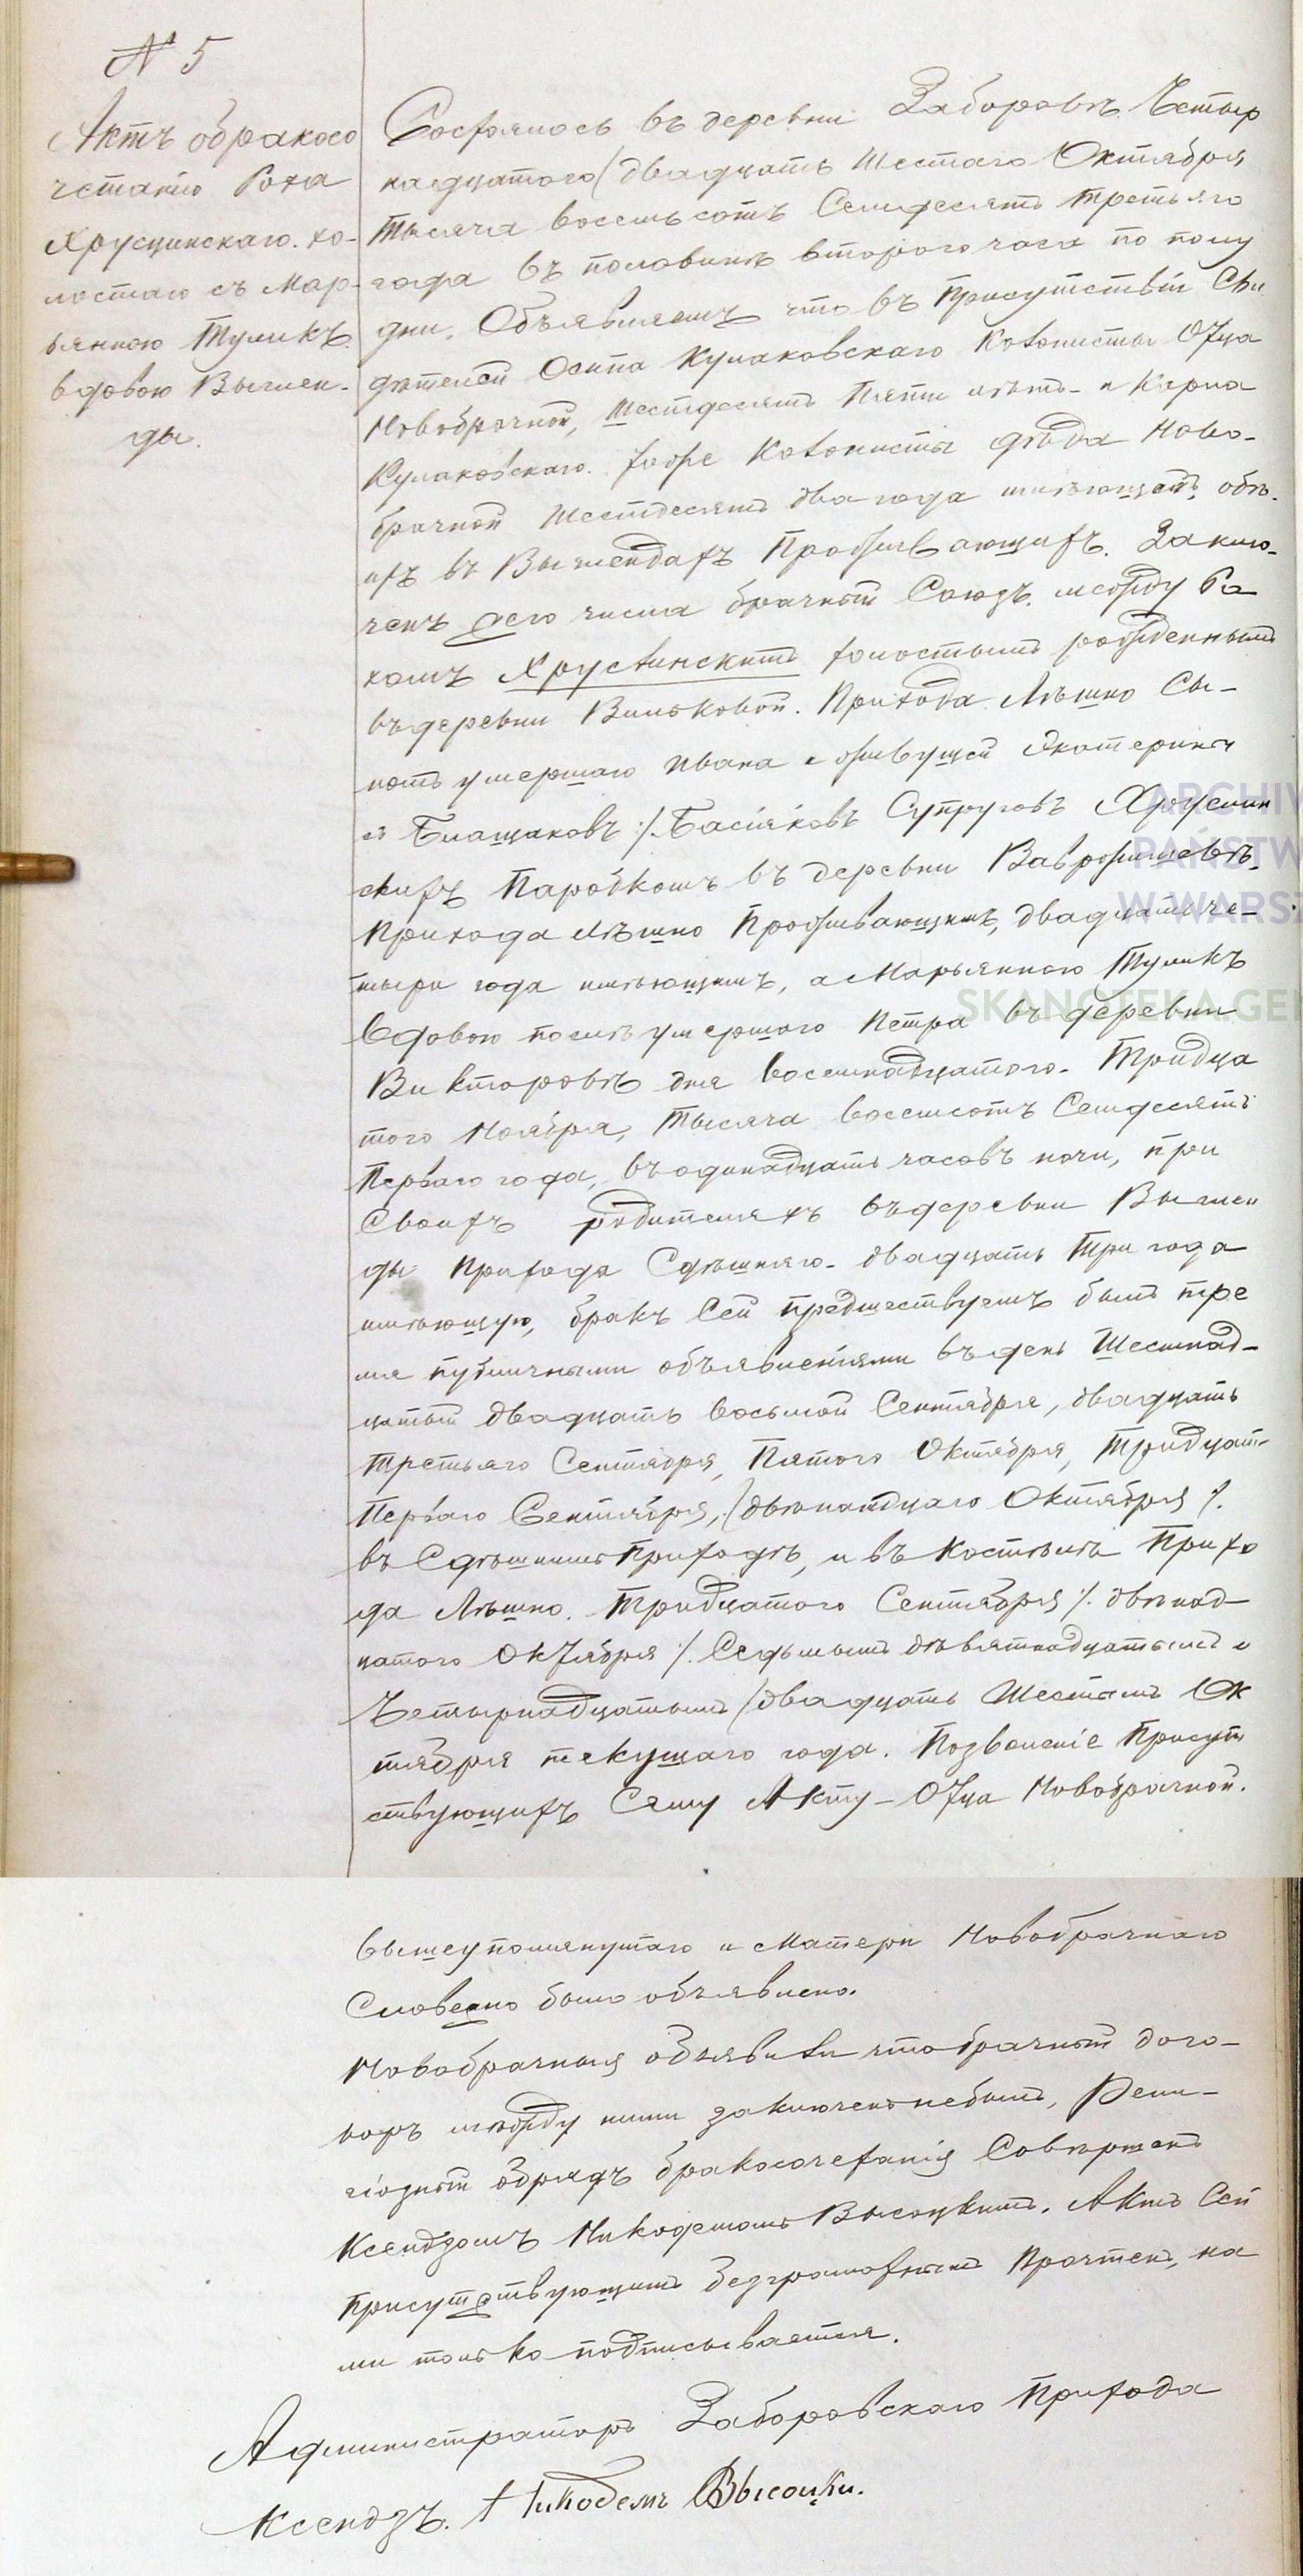 № 5
Актъ обракосо
четанію Роха
Хрусцинскаго. хо-
лостаго съ Мар-
ьянною Тумикъ
вдовою Вымен-
ды.
Состоялось въ деревни Заборовъ. Четыр
надцатого (двадцать шестаго Октября
тысяча восемьсотъ Семдесятъ третьяго
года въ половинѣ второго часа по полу
дни. Объявляемъ что въ присутствіи Сви
дѣтелей Осипа Кулаковскаго Колонисты Отца
Новобрачной, шестдесятъ пяти лѣтъ - и Карла
Кулаковскаго тоже Колонисты дѣда Ново-
брачной шестдесятъ два года имѣющаго обѣ-
ихъ въ Вымендахъ Проживающихъ. Заклю-
ченъ сего числа брачный Союзъ. между Ро
хомъ Хрустинскимъ холостымъ рожденнымъ
въ деревни Вильковой. Прихода Лѣшно Сы-
номъ умершаго Ивана и живущей Екатерины
съ Блащаковъ :/. Басіяковъ Супруговъ Хрусцин
скихъ Паробкомъ въ деревни Ваврожишевѣ.
прихода Лѣшно Проживающимъ, двадцать че-
тыри года имѣющимъ, а Марьянною Тумикъ
Вдовою послѣ умершого Петра въ деревни
Викторовѣ дня восемнадцатого. Тридца
того Ноября, тысяча восемсотъ Семдесятъ
Перваго года, въ одинадцать часовъ ночи, при
Своихъ родителяхъ въ деревни Вымен
ды Прихода Сдѣшняго. двадцать три года
имѣющую, бракъ Сей предшествуемъ былъ тре
мя публичными объявленіями въ день Шестнад-
цатый двадцать восьмой Сентября, двадцать
третьяго Сентября, Пятого Октября, тридцать
Перваго Сентября, (двюнандцаго Октября /.
въ Сдѣшнимъ Приходѣ, и въ Костелѣ Прихо
да Лѣшно. Тридцатого Сентября /. двѣнад-
цатого Октября /. Седьмымъ дѣвятнадцатымъ и
Четырнадцатымъ (двадцать Шестымъ Ок
тября текущаго года. Позволеніе Присут
ствующихъ Сему Акту - Отца Новобрачной.
вышеупомянутаго и Матери Новобрачнаго
Словесно было объявлено.
Новобрачныя объявили что брачный дого-
воръ между ними заключенъ небылъ, Рели-
гіозный обрядъ бракосочетанія Совершенъ
Ксендзомъ Никодемомъ Высоцкимъ. Актъ Сей
присутствующимъ безграмотнымъ Прочтенъ, на
ми только подписывается.
Администраторъ Заборовскаго Прихода
Ксендзъ. Никодемъ Высоцки.
ARCHIW
PAŃSTW
W WARSZ
SKANOTEKA.GEN